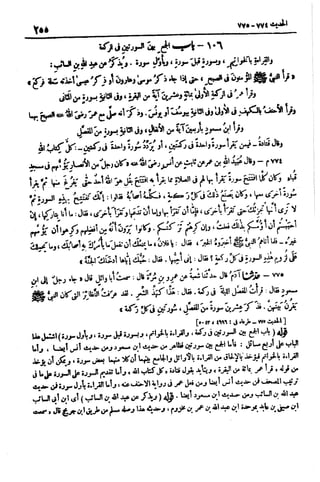 الحديث ٧٧٤ - ٧٧٥ ٢٥٥
١٠٦ - باب الجمع بين السورتين في الركعة
والقراءة بالخواتيم، وبسورة قبل سورة، وبأول سورة. ويذكر عن عبد الله بن السائب:
« قرأ النبي ﷺ المؤمنون في الصبح، حتى إذا جاء ذكر موسى وهارون أو ذكر عيسى أخذته سعلة فركع »
وقرأ عمر في الركعة الأولى بمائة وعشرين آية من البقرة، وفي الثانية بسورة من المثاني
وقرأ الأحنف بالكهف في الأولى وفي الثانية بيوسف أو يونس. وذكر أنه صلى مع عمر رضي الله عنه الصبح بهما
وقرأ ابن مسعود بأربعين آية من الأنفال، وفي الثانية بسورة من المفصل
وقال قتادة - فيمن يقرأ سورة واحدة في ركعتين، أو يردد سورة واحدة في ركعتين -: كل كتاب الله
٧٧٤ م - وقال عبيد الله بن عمر عن ثابت عن أنس رضي الله عنه « كان رجل من الأنصار يؤمهم في مسجد
قباء، وكان كلما افتتح سورة يقرأ بها لهم في الصلاة مما يقرأ به افتتح بقل هو الله أحد حتى يفرغ منها ثم يقرأ
سورة أخرى معها، وكان يصنع ذلك في كل ركعة، فكلمه أصحابه فقالوا: إنك تفتتح بهذه السورة ثم
لا ترى أنها تجزئك حتى تقرأ بأخرى، فإما أن تقرأ بها وإما أن تدعها وتقرأ بأخرى. فقال: ما أنا بتاركها، إن
أحببتم أن أؤمكم بذلك فعلت، وإن كرهتم تركتكم. وكانوا يرون أنه من أفضلهم وكرهوا أن يؤمهم
غيره. فلما أتاهم النبي ﷺ أخبروه الخبر، فقال: يا فلان، ما يمنعك أن تفعل ما يأمرك به أصحابك، وما يحملك
على لزوم هذه السورة في كل ركعة؟ فقال: إني أحبها. فقال: حبك إياها أدخلك الجنة »
٧٧٥ - حدثنا آدم قال حدثنا شعبة عن عمرو بن مرة قال: سمعت أبا وائل قال « جاء رجل إلى ابن
مسعود فقال: قرأت المفصل الليلة في ركعة. فقال: هذا كهذ الشعر. لقد عرفت النظائر التي كان النبي ﷺ
يقرن بينهن. فذكر عشرين سورة من المفصل، سورتين في كل ركعة »
[الحديث ٧٧٥ - طرفاه في: ٤٩٩٦، ٥٠٤٣]
قوله (باب الجمع بين السورتين في ركعة، والقراءة بالخواتم، وبسورة قبل سورة، وبأول سورة) اشتمل هذا
الباب على أربع مسائل: فأما الجمع بين سورتين فظاهر من حديث ابن مسعود ومن حديث أنس أيضا، وأما
القراءة بالخواتم فيؤخذ بالإلحاق من القراءة بالأوائل والجامع بينهما أن كلا منهما بعض سورة، ويمكن أن يؤخذ
من قوله: قرأ عمر بمائة من البقرة، ويتأيد بقول قتادة: كل كتاب الله. وأما تقديم السورة على السورة على ما في
ترتيب المصحف فمن حديث أنس أيضا ومن فعل عمر في رواية الأحنف عنه. وأما القراءة بأول سورة فمن حديث
عبد الله بن السائب ومن حديث ابن مسعود أيضا. قوله (ويذكر عن عبد الله بن السائب) أي ابن أبي السائب
ابن صيفي بن عابد بموحدة ابن عبد الله بن عمر بن مخزوم، وحديثه هذا وصله مسلم من طريق ابن جريج قال: سمعت